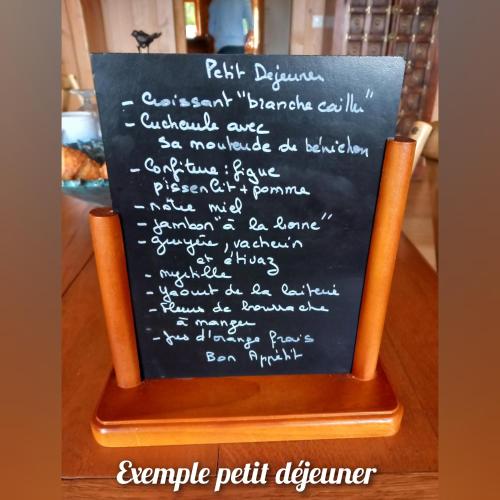 Petit Dejeuner
- Croissant "branche caillu"
- Cuchaule avec
sa moutarde de bénichon
- Confiture : figue
pissenlit + pomme
- notre miel
- jambon "à la borne"
- gruyère, vacherin
et étivaz
- myrtille
- yaourt de la laiterie
- fleurs de bourrache
à manger
- jus d'orange frais
Bon Appétit
Exemple petit déjeuner